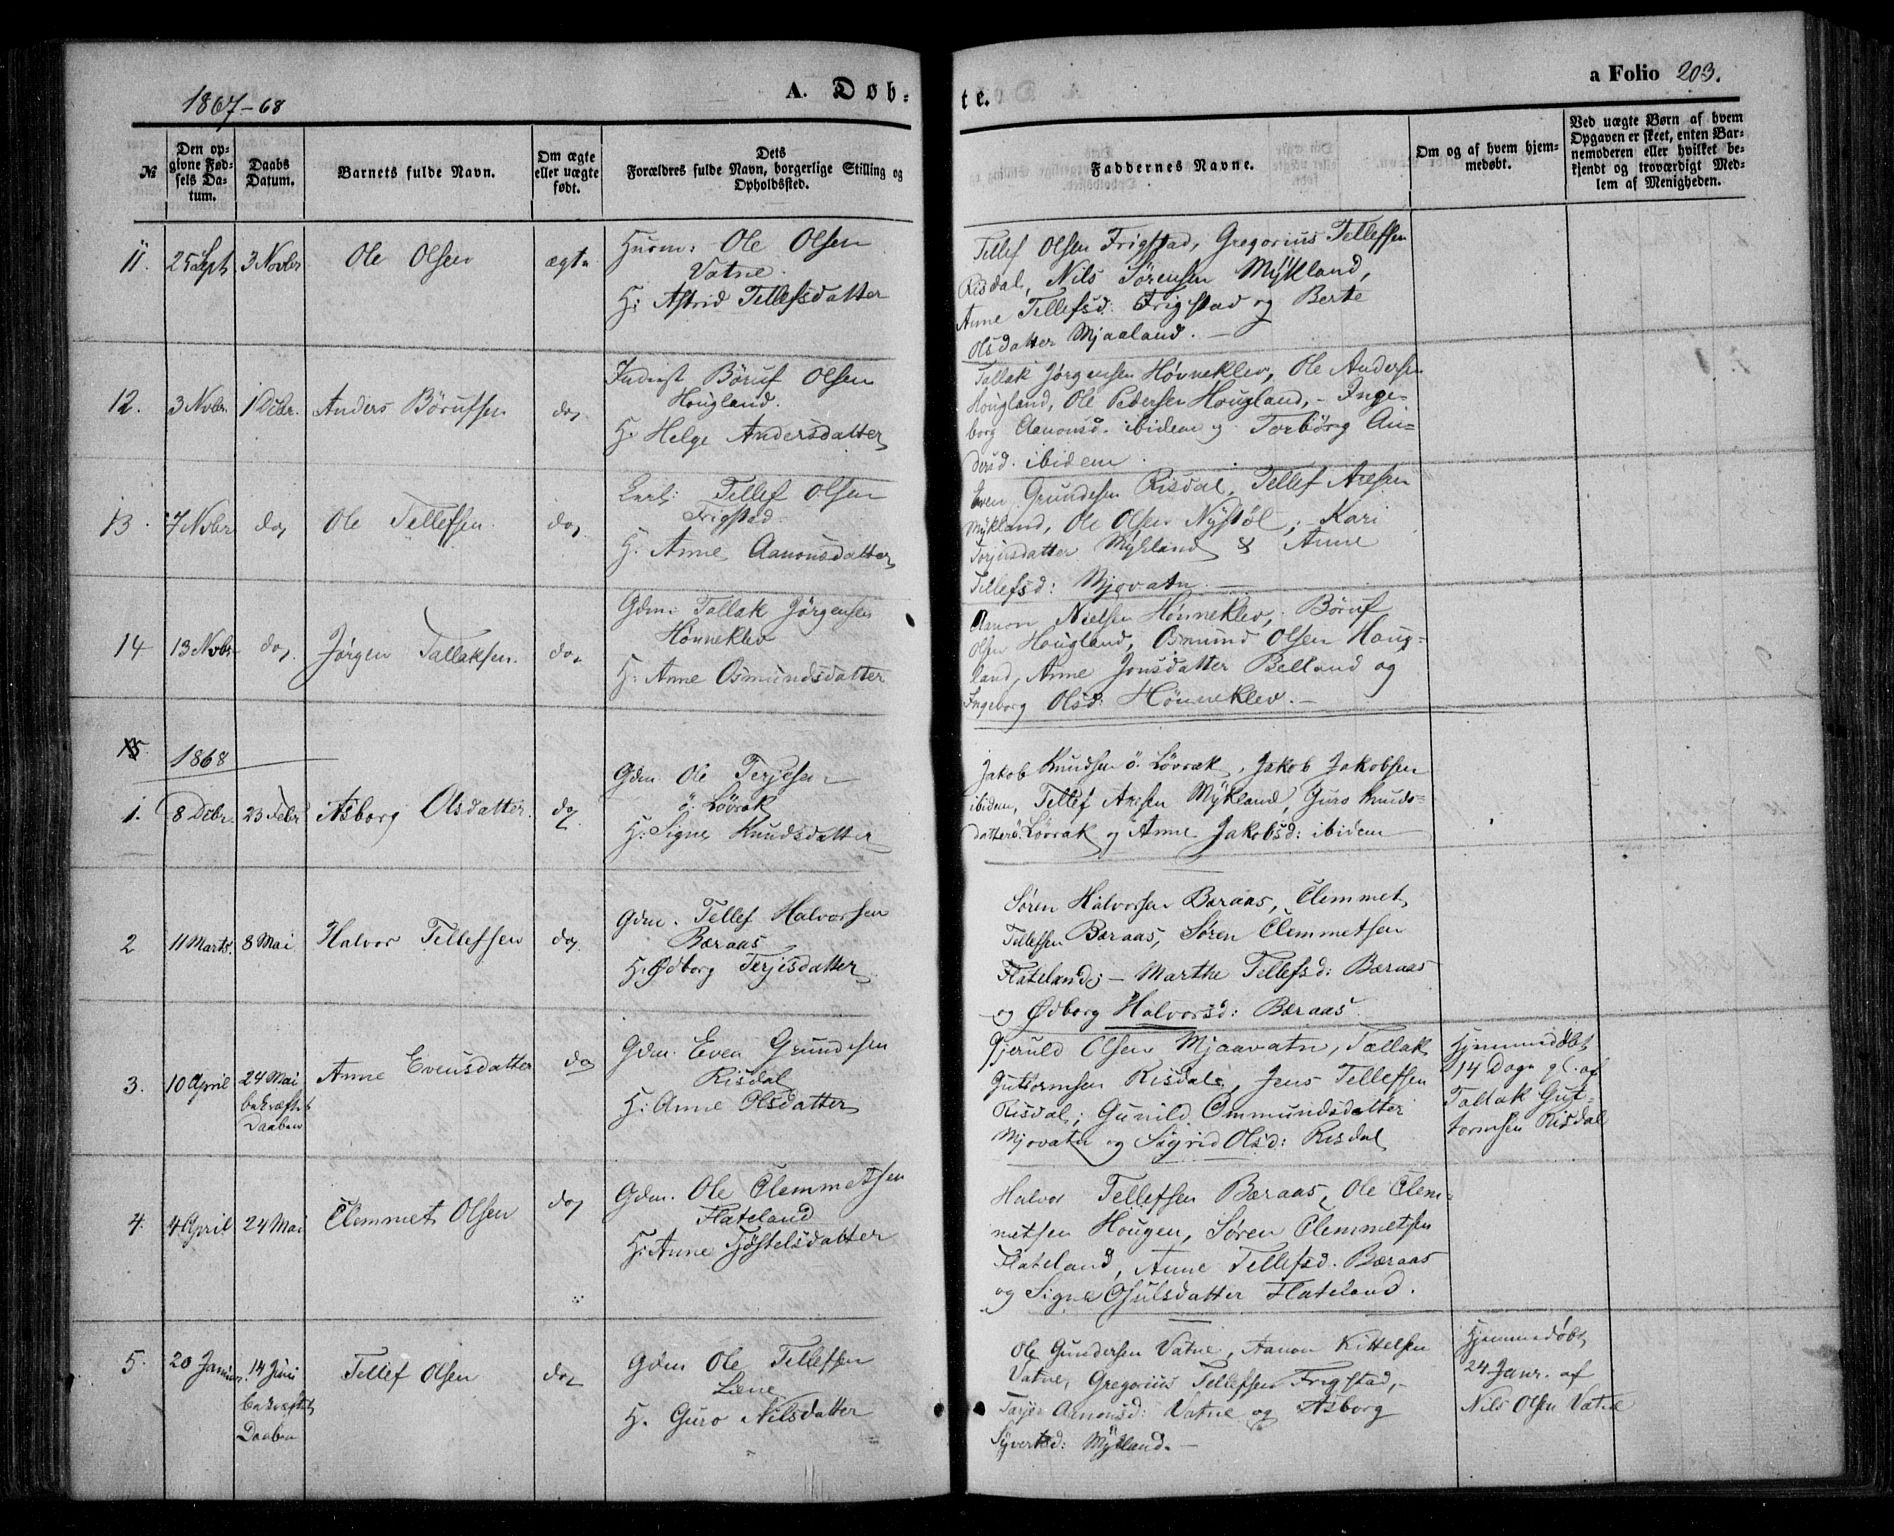 1867-68
A. Døb-
te.
a Folio 203.
№
Den op-
givne Fød-
sels Da-
tum.
Daabs
Datum.
Barnets fulde Navn.
Om ægte
eller uægte
født.
Dets
Forældres fulde Navn, borgerlige Stilling og
Opholdssted.
Faddernes Navne.
Om og af hvem hjem-
medøbt.
Ved uægte Børn af hvem
Opgaven er skeet, enten Bar-
nemoderen eller hvilket be-
kjendt og troværdigt Med-
lem af Menigheden.
11. 25 Sept 3 Novbr Ole Olsen ægte
Huusm: Ole Olsen
Vatne.
H: Astrid Tellefsdatter
Tellef Olsen Frigstad, Gregorius Tellefsen
Risdal, Nils Sørensen Mykland,
Anne Tellefsd: Frigstad og Berte
Olsdatter Mjaaland. —
12. 3 Nvbr. 1 Debr. Anders Børufsen do,
Inderst Børuf Olsen
Hougland.
H. Helge Andersdatter
Tallak Jørgensen Høvneklev, Ole Andersen
Hougland, Ole Pedersen Hougland, - Inge-
borg Aanonsd. ibidem og Torbørg An-
dersd. ibidem.
13. 7 Novbr do, Ole Tellefsen do,
Tellef Olsen
Frigstad
H. Anne Aanonsdatter
Even Grundesen Risdal, Tellef Aresen
Mykland, Ole Olsen Nystøl, Kari
Torjusdatter Mykland & Anne
Tellefsd: Mjovatn. —
14 13 Novbr do, Jørgen Tallaksen do,
Gdm: Tallak Jørgensen
Hønneklev
H. Anne Osmundsdatter
Aanon Nielsen Hønneklev, Børuf
Olsen Hougland, Osmund Olsen Houg-
land, Anne Jonsdatter Belland og
Ingeborg Olsd: Hønneklev. —
15. 1868
1. 8 Debr. 23 Febr Asborg Olsdatter. do,
Gdm. Ole Terjesen
ö. Løvrak
H: Signe Knudsdatter
Jakob Knudsen ö. Løvrak, Jakob Jakobsen
ibidem, Tellef Aresen Mykland, Guro Knuds-
datter ö. Løvrak og Anne Jakobsd: ibidem
2 11 Marts. 8 Mai Halvor Tellefsen do,
Gdm. Tellef Halvorsen
Bæraas
H: Ødborg Terjesdatter
Søren Halvorsen Bæraas, Clemmet
Tellefsen Bæraas, Søren Clemmetsen
Flateland; - Marthe Tellefsd: Bæraas
og Ødborg Halvorsd: Bæraas.
3. 10 April 24 Mai
bekræftet
Daaben
Anne Evensdatter do
Gdm. Even Grundesen
Risdal
H: Anne Olsdatter
Gjeruld Olsen Mjaavatn, Tallak
Guttormsen Risdal, Jens Tellefsen
Risdal; Gunild Ommundsdatter
Mjovatn og Sigrid Olsd: Risdal
Hjemmedøbt
14 Dage gl. af
Tallak Gut-
tormsen Risdal
4. 4 April 24 Mai Clemmet Olsen do,
Gdm. Ole Clemmetsen
Flateland
H: Anne Tjøstelsdatter
Halvor Tellefsen Bæraas, Ole Clem-
metsen Hougen, Søren Clemmetsen
Flateland, Anne Tellefsd. Bæraas
og Signe Gjulsdatter Flateland.
5. 20 Januar. 14 Juni
bekræftet
Daaben
Tellef Olsen do,
Gdm Ole Tellefsen
Liene
H. Guro Nilsdatter
Ole Gundersen Vatne, Aanon Kittelsen
Vatne, Gregorius Tellefsen Frigstad,-
Aanonsd: Vatne og Asborg
Syvertsd: Mykland. —
Hjemmedøbt
24 Janr. af
Nils Olsen Vatne